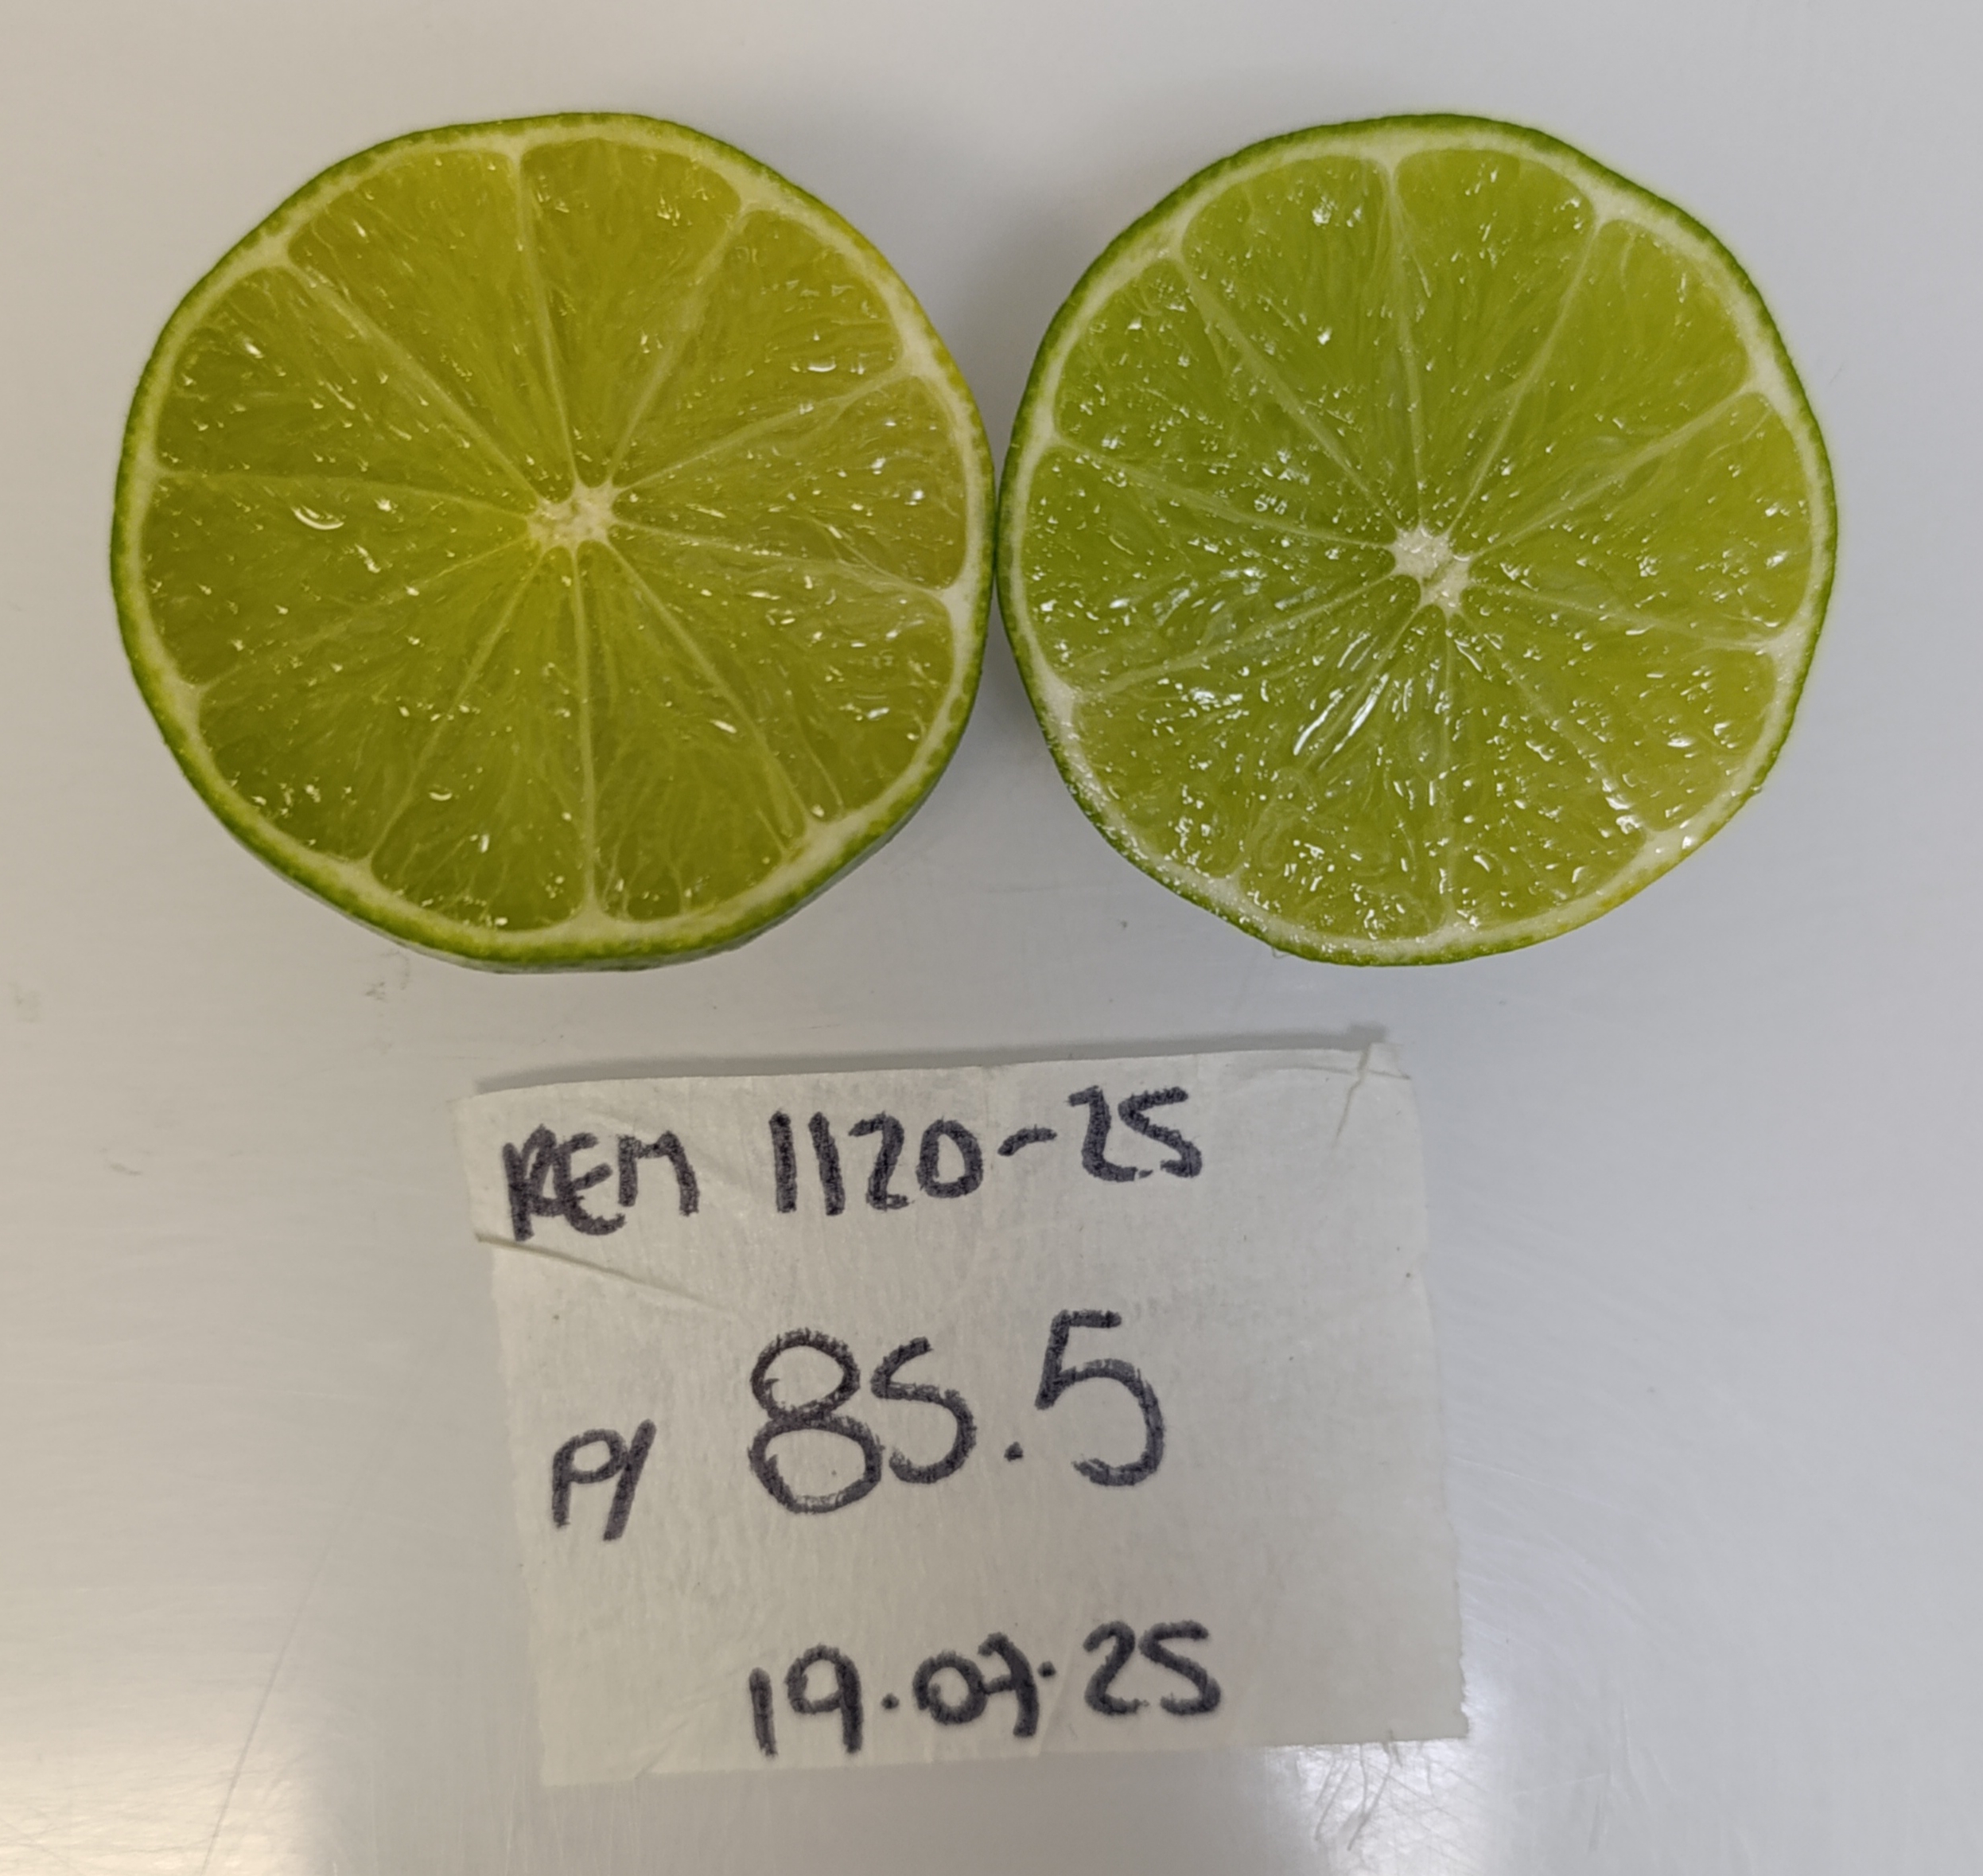 REM 1120-25
P/ 85.5
19.07.25